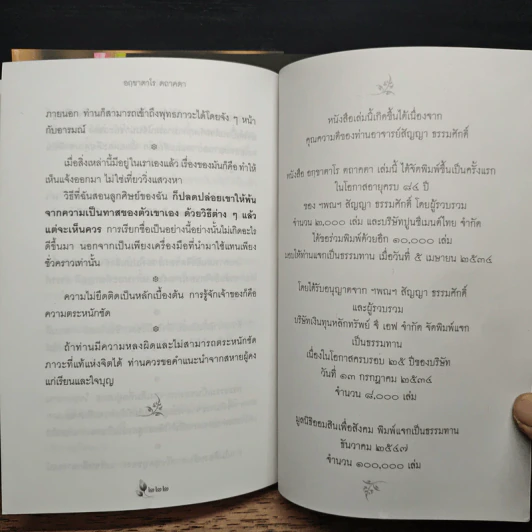 อฤชาตาโร ตถาคตา
ภายนอก ท่านก็สามารถเข้าถึงพุทธภาวะได้โดยจัง ๆ หน้า
กับอารมณ์
เมื่อสิ่งเหล่านี้มีอยู่ในเราเองแล้ว เรื่องของมันก็คือ ทำให้
เห็นแจ้งออกมา ไม่ใช่เที่ยววิ่งแสวงหา
วิธีที่ฉันสอนลูกศิษย์ของฉัน ก็ปลดปล่อยเขาให้พ้น
จากความเป็นทาสของตัวเขาเอง ด้วยวิธีต่าง ๆ แล้ว
แต่จะเห็นควร การเรียกชื่อเป็นอย่างนี้อย่างนั้นไม่เกิดอะไร
ดีขึ้นมา นอกจากเป็นเพียงเครื่องมือที่นำมาใช้แทนเพียง
ชั่วคราวเท่านั้น
ความไม่ยึดติดเป็นหลักเบื้องต้น การรู้จักเจ้าของก็คือ
ความตระหนักชัด
ถ้าท่านมีความหลงผิดและไม่สามารถตระหนักชัด
ภาวะที่แท้แห่งจิตได้ ท่านควรขอคำแนะนำจากสหายผู้คง
แก่เรียนและใจบุญ
หนังสือเล่มนี้เกิดขึ้นได้เนื่องจาก
คุณความดีของท่านอาจารย์สัญญา ธรรมศักดิ์
หนังสือ อกฺขาตาโร ตถาคตา เล่มนี้ ได้จัดพิมพ์ขึ้นเป็นครั้งแรก
ในโอกาสอายุครบ ๘๔ ปี
ของ ฯพณฯ สัญญา ธรรมศักดิ์ โดยผู้รวบรวม
จำนวน ๒,๐๐๐ เล่ม และบริษัทปูนซีเมนต์ไทย จำกัด
ได้ขอร่วมพิมพ์ด้วยอีก ๑๐,๐๐๐ เล่ม
มอบให้ท่านแจกเป็นธรรมทาน เมื่อวันที่ ๕ เมษายน ๒๕๓๔
โดยได้รับอนุญาตจาก ฯพณฯ สัญญา ธรรมศักดิ์
และผู้รวบรวม
บริษัทเงินทุนหลักทรัพย์ จี เอฟ จำกัด จัดพิมพ์แจก
เป็นธรรมทาน
เนื่องในโอกาสครบรอบ ๒๕ ปีของบริษัท
วันที่ ๑๓ กรกฎาคม ๒๕๓๔
จำนวน ๘,๐๐๐ เล่ม
มูลนิธิออมสินเพื่อสังคม พิมพ์แจกเป็นธรรมทาน
ธันวาคม ๒๕๔๗
จำนวน ๑๐๐,๐๐๐ เล่ม